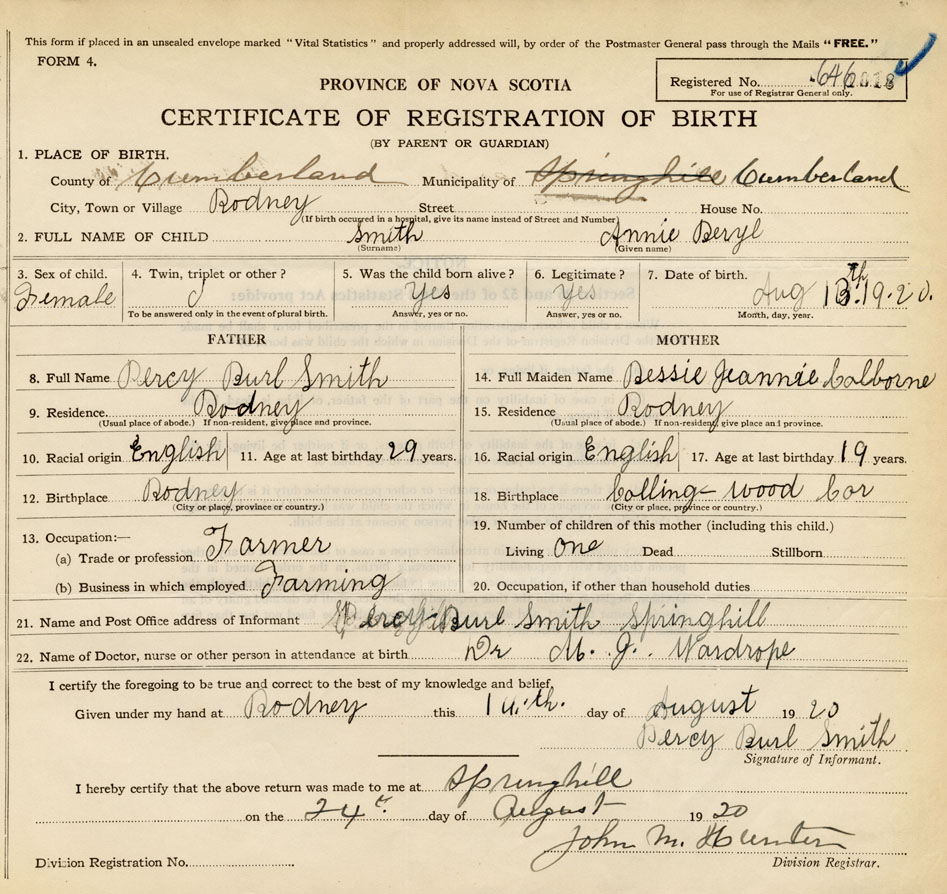 This form if placed in an unsealed envelope marked "Vital Statistics" and properly addressed will, by order of the Postmaster General pass through the Mails "FREE."
FORM 4.
PROVINCE OF NOVA SCOTIA
Registered No.
For use of Registrar General only.
CERTIFICATE OF REGISTRATION OF BIRTH
(BY PARENT OR GUARDIAN)
1. PLACE OF BIRTH.
County of Cumberland Municipality of Springhill Cumberland
City, Town or Village Rodney Street House No.
(If birth occurred in a hospital, give its name instead of Street and Number)
2. FULL NAME OF CHILD Smith Annie Beryl
(Surname) (Given name)
3. Sex of child. 4. Twin, triplet or other? 5. Was the child born alive? 6. Legitimate? 7. Date of birth.
Female Yes Yes Aug 13th 1920.
To be answered only in the event of plural birth. Answer, yes or no. Answer, yes or no. Month, day, year.
FATHER
8. Full Name Percy Burl Smith
9. Residence. Rodney
(Usual place of abode.) If non-resident, give place and province.
10. Racial origin English 11. Age at last birthday 29 years.
12. Birthplace Rodney
(City or place, province or country.)
13. Occupation:—
(a) Trade or profession Farmer
(b) Business in which employed Farming
MOTHER
14. Full Maiden Name Bessie Jeannie Colborne
15. Residence Rodney
(Usual place of abode.) If non-resident, give place and province.
16. Racial origin English 17. Age at last birthday 19 years.
18. Birthplace Colling-wood Cor
(City or place, province or country.)
19. Number of children of this mother (including this child.)
Living one Dead Stillborn
20. Occupation, if other than household duties
21. Name and Post Office address of Informant Percy Burl Smith Springhill
22. Name of Doctor, nurse or other person in attendance at birth Dr M. J. Wardrope
I certify the foregoing to be true and correct to the best of my knowledge and belief,
Given under my hand at Rodney this day of August 1920
Percy Burl Smith
Signature of Informant.
I hereby certify that the above return was made to me at Springhill
on the 24th day of August 1920
John M. Hunter
Division Registrar.
Division Registration No.